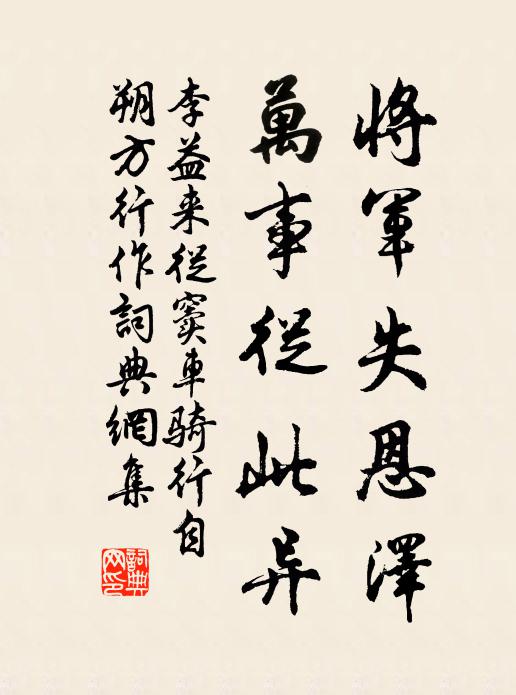 將軍失恩澤
萬事從此异
李益来從窦車騎行自
朔方行作詞典網集
詞典
网印